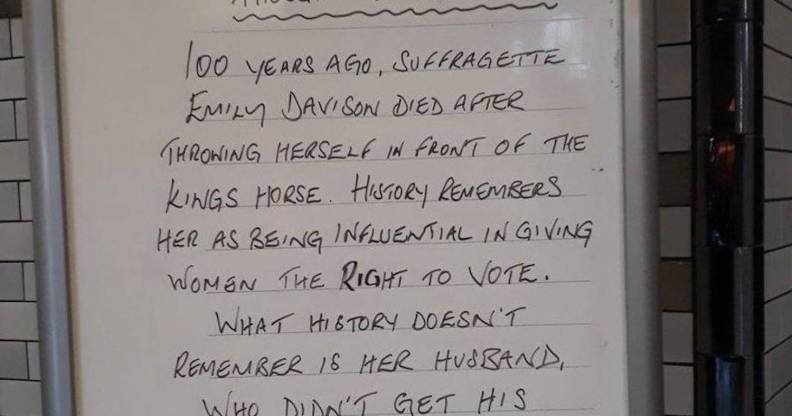 100 YEARS AGO, SUFFRAGETTE
EMILY DAVISON DIED AFTER
THROWING HERSELF IN FRONT OF THE
KINGS HORSE. HISTORY REMEMBERS
HER AS BEING INFLUENTIAL IN GIVING
WOMEN THE RIGHT TO VOTE.
WHAT HISTORY DOESN'T
REMEMBER IS HER HUSBAND,
WHO DIDN'T GET HIS